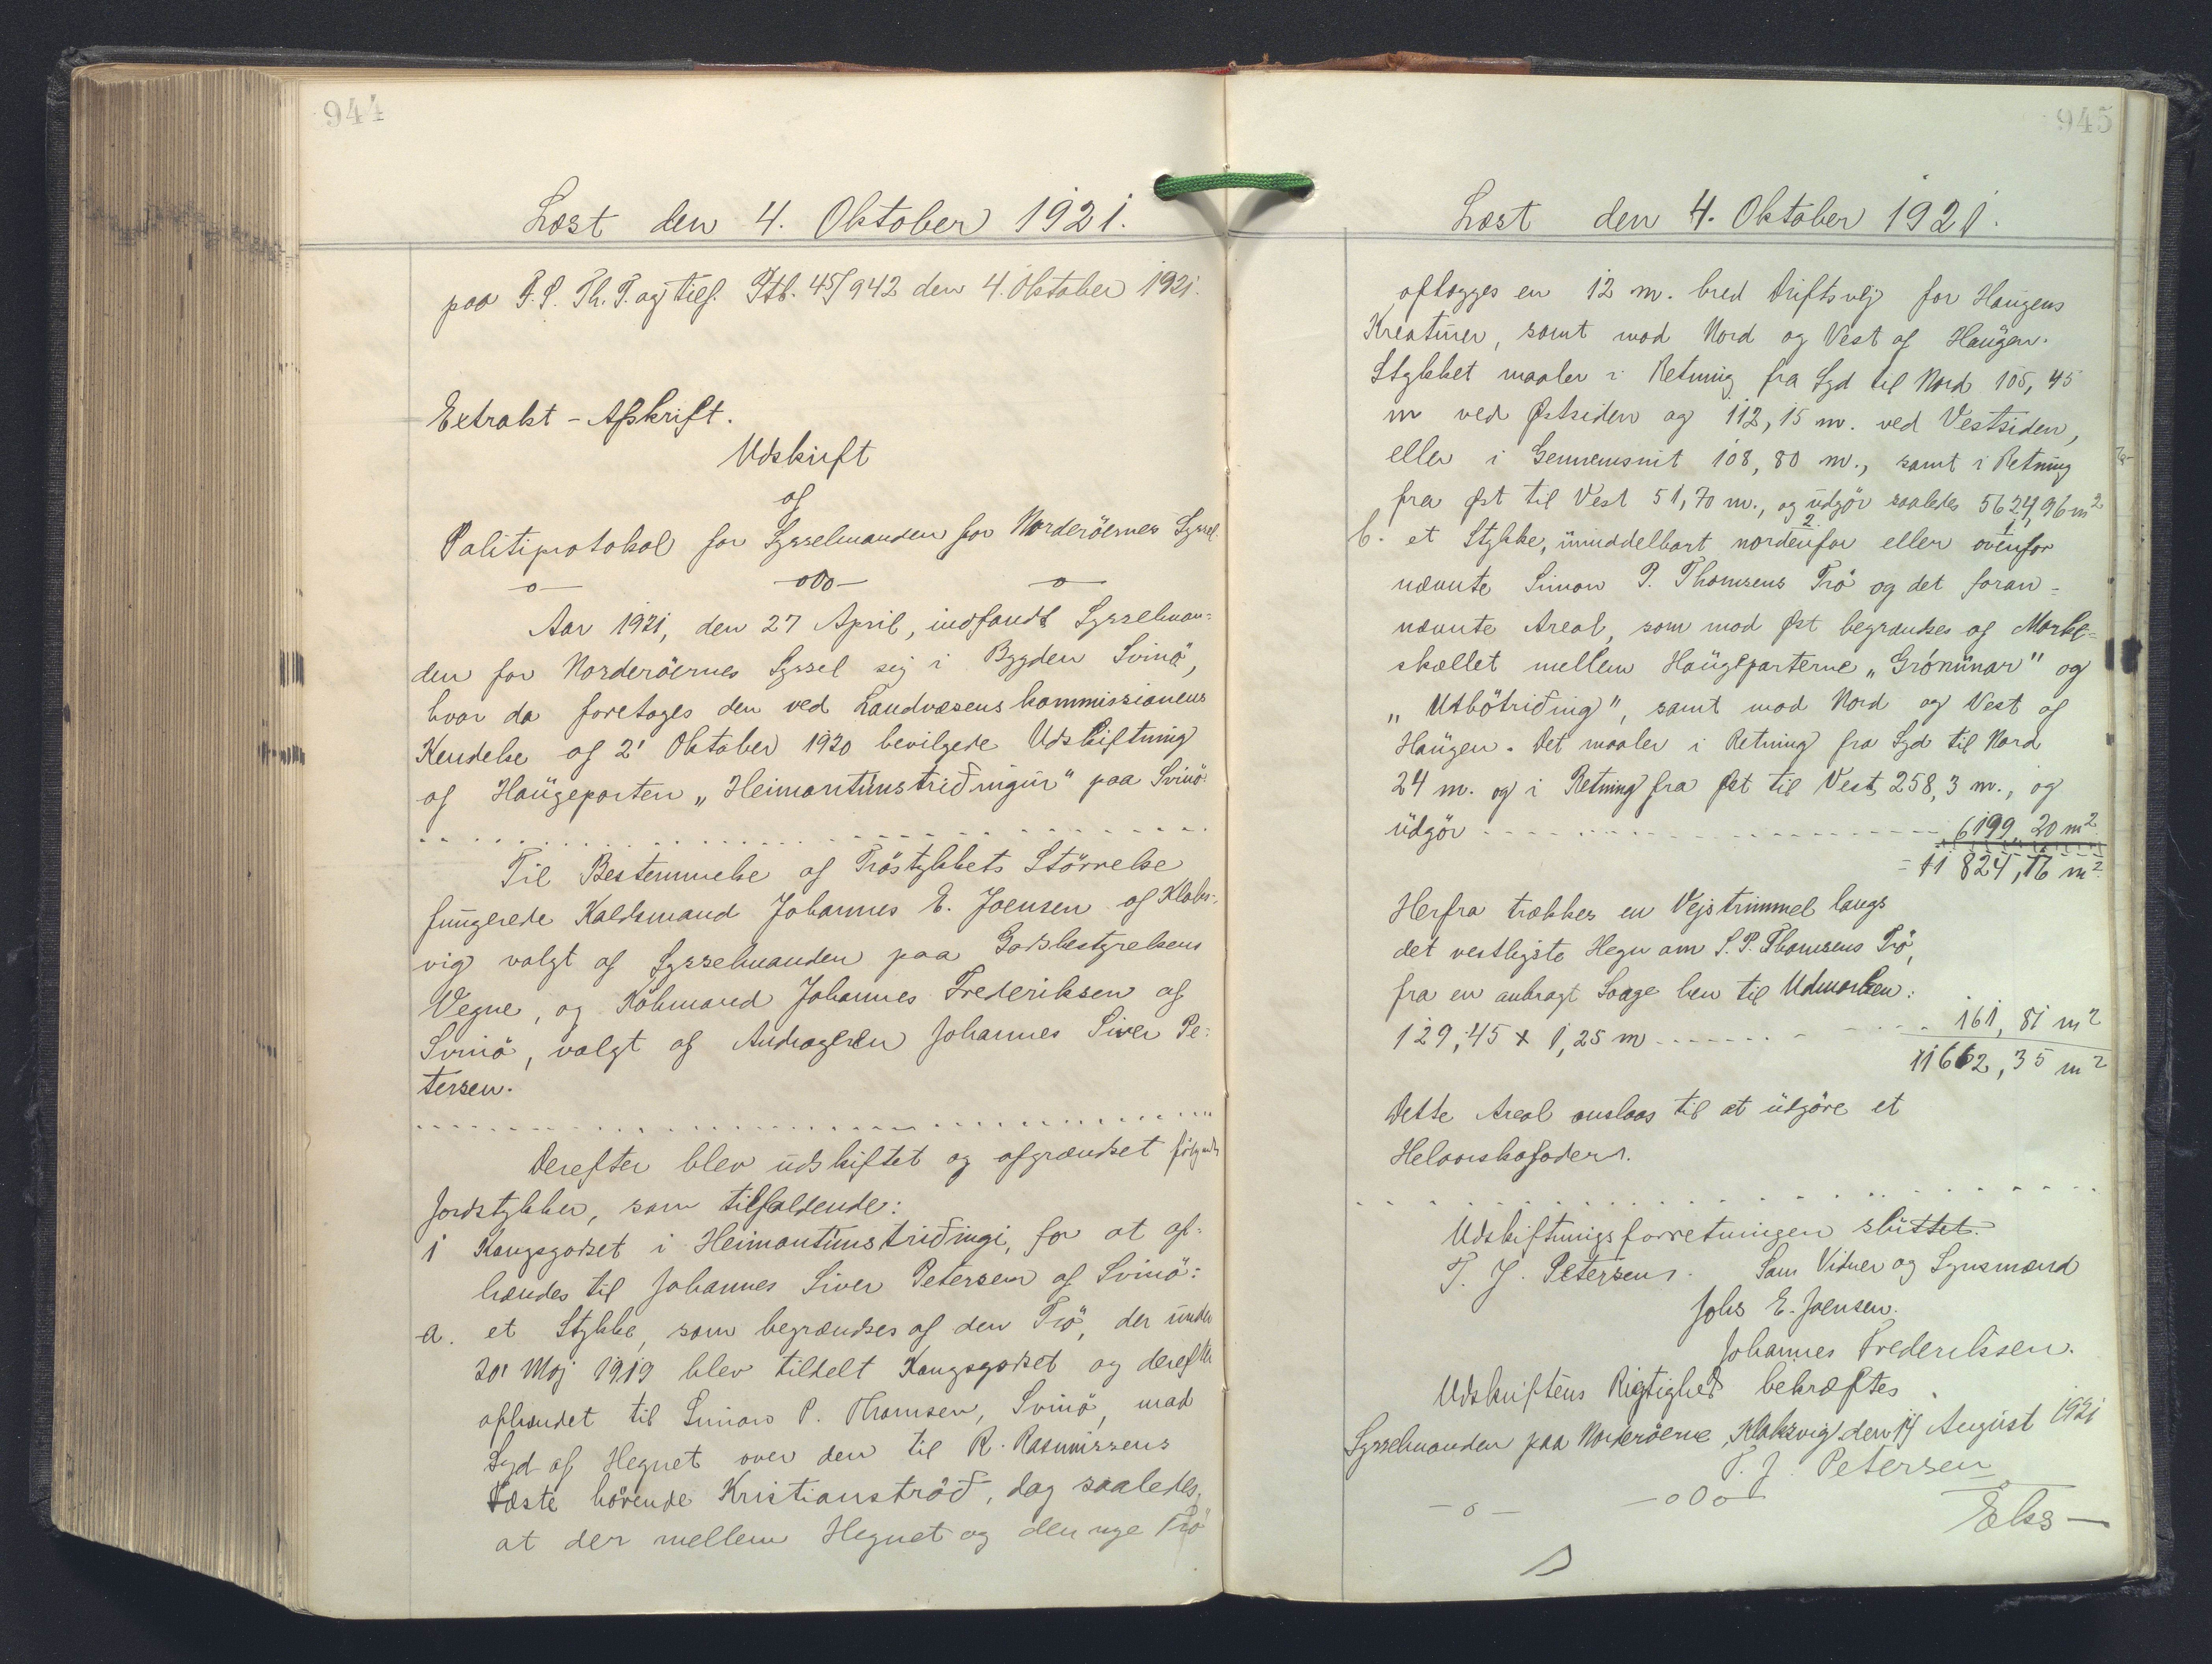 944
Læst den 4. Oktober 1921.
paa F. S. Th. P. og tilf. Ptb. 45/942 den 4. Oktober 1921.
Extrakt - Afskrift.
Udskrift
af
Politiprotokol for Sysselmanden for Norderöernes Syssel.
—o— —o0o— —o—
Aar 1921, den 27 April, indfandt Sysselman-
den for Norderöernes Syssel sig i Bygden Svinö,
hvor da foretoges den ved Landvæsenskommissionens
Kendelse af 2' Oktober 1920 bevilgede Udskiftning
af Haugeparten „Heimantúnstriðingur" paa Svinö.
Til Bestemmelse af Tröstykkets Störrelse
fungerede Kaldsmand Johannes E. Joensen af Klaks-
vig valgt af Sysselmanden paa Godsbestyrelsens
Vegne, og Köbmand Johannes Frederiksen af
Svinö, valgt af Andrageren Johannes Siver Pe-
tersen.
Derefter blev udskiftet og afgrændset følgende
Jordstykker, som tilfaldende:
1 Kongsgodset i Heimantúnstriðingi, for at af-
hændes til Johannes Siver Petersen af Svinö:
a. et Stykke, som begrændses af den Trö, der under
20' Maj 1919 blev tildelt Kongsgodset og derefter
afhændet til Simon P. Thomsen, Svinö, mod
Syd af Hegnet over den til R. Rasmussens
Fæste hörende Kristianströð, dog saaledes,
at der mellem Hegnet og den nye Trö
945
Læst den 4. Oktober 1921.
aflægges en 12 m. bred Driftsvej for Haugens
Kreaturer, samt mod Nord og Vest af Haugen.
Stykket maaler i Retning fra Syd til Nord 105,45
m ved Østsiden og 112,15 m. ved Vestsiden,
eller i Gennemsnit 108,80 m., samt i Retning
fra Øst til Vest 51,70 m., og udgör saaledes 5624,96 m²
b. et Stykke, umiddelbart nordenfor eller ovenfor
2. 1.
nævnte Simon P. Thomsens Trö og det foran-
nævnte Areal, som mod Øst begrændses af Marke-
skællet mellem Haugeparterne „Grónúnar" og
„Utbötriðing", samt mod Nord og Vest af
Haugen. Det maaler i Retning fra Syd til Nord
24 m. og i Retning fra Øst til Vest 258,3 m., og
udgör 6199,20 m²
= 11 824,16 m²
Herfra trækkes en Vejstrimmel langs
det vestligste Hegn om S. P. Thomsens Trö,
fra en anbragt Laage hen til Udmarken:
129,45 x 1,25 m 161,81 m²
11662,35 m²
Dette Areal ansloas til at udgöre et
Helaarskofoder.
Udskiftningsforretningen sluttet.
T. J. Petersen. Som Vidner og Synsmænd
Johs E. Joensen.
Johannes Frederiksen.
Udskriftens Rigtighed bekræftes.
Sysselmanden paa Norderöerne, Klaksvig den 14 August 1921
T. J. Petersen
—o— —o0o—